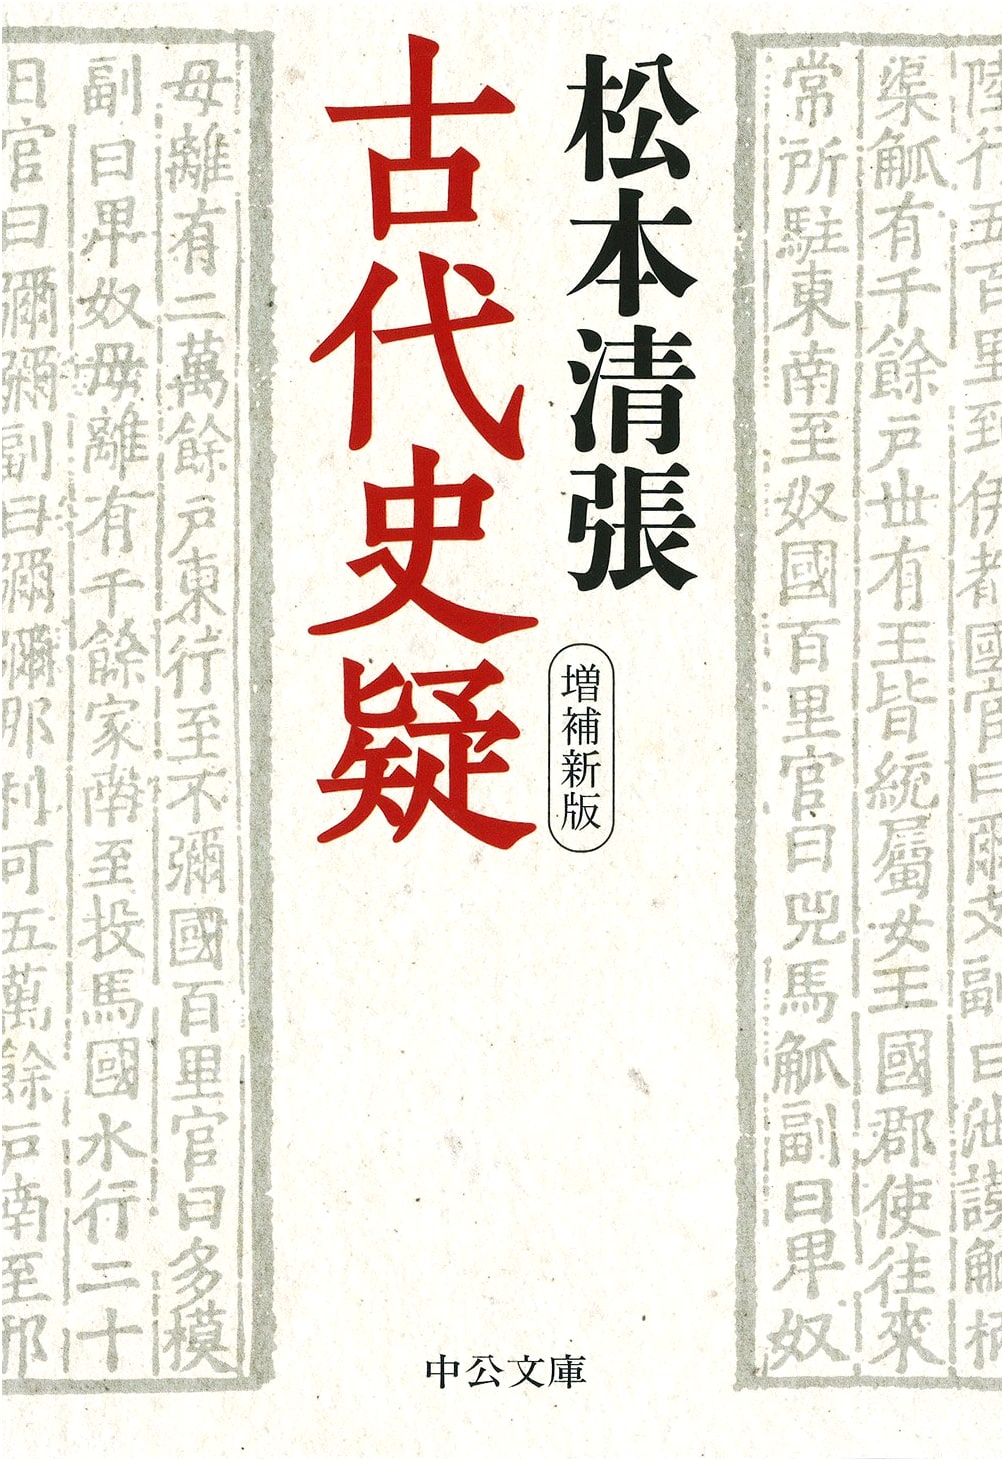 陸行五百里到伊都國官曰爾支副曰泄謨觚柄
渠觚有千餘戸丗有王皆統屬女王國郡使往來
常所駐東南至奴國百里官曰兕馬觚副曰卑奴
松本清張
増補新版
古代史疑
母離有二萬餘戸東行至不彌國百里官曰多模
副曰卑奴母離有千餘家南至投馬國水行二十
日官曰彌彌副曰彌彌那利可五萬餘戸南至邪
中公文庫